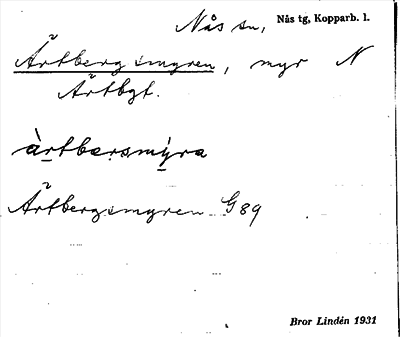 Nås sn, Nås tg, Kopparb. l.
Ärtbergsmyren, myr N
Ärtbgt.
ä̀rtbærsmýra
Ärtbergsmyren G89
Bror Lindén 1931